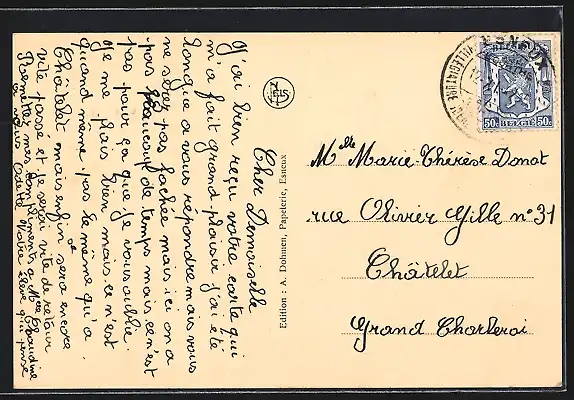 Cher Demoiselle
J'ai bien reçu votre carte qui
m'a fait grand plaisir j'ai été
longue a vous répondre mais vous
ne serez pas fachée mais ici on a
pas beaucoup de temps mais ce n'est
pas pour ça que je vous oublie.
Je me plais bien mais ce n'est
quand même pas le même qu'a
Châtelet mais enfin sera encore
vite passé et je serai vite de retour
Remettez mes compliments a Mme Claudine
a vous aussi Votre élève qui pense
Edition : A. Dohmen, Papeterie, Esneux
ESNEUX
BELGIE
50c BELGIË 50c
Melle Marie-Thérèse Donot
rue Olivier Gille n° 31
Châtelet
Grand Charleroi